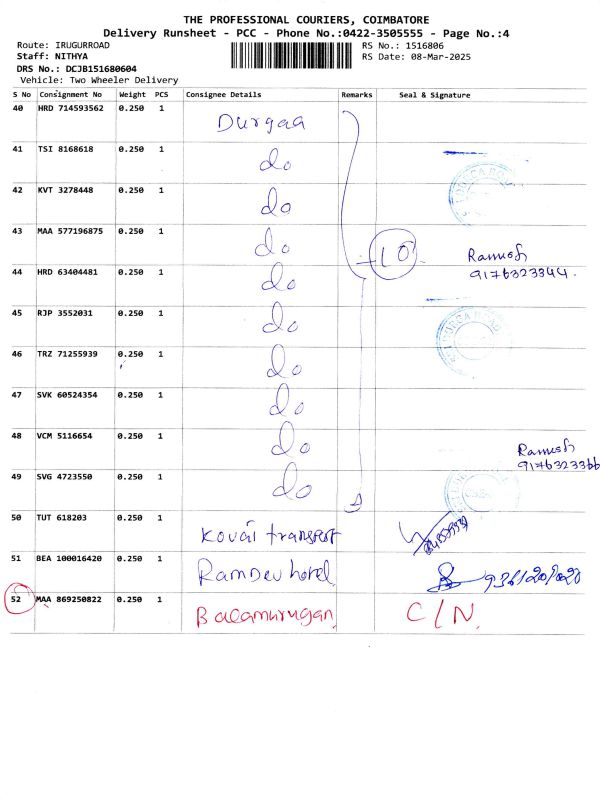 THE PROFESSIONAL COURIERS, COIMBATORE
Delivery Runsheet - PCC - Phone No.:0422-3505555 - Page No.:4
Route: IRUGURROAD RS No.: 1516806
Staff: NITHYA RS Date: 08-Mar-2025
DRS No.: DCJB151680604
Vehicle: Two Wheeler Delivery
S No Consignment No Weight PCS Consignee Details Remarks Seal & Signature
40 HRD 714593562 0.250 1 Durgaa
41 TSI 8168618 0.250 1 do
42 KVT 3278448 0.250 1 do
43 MAA 577196875 0.250 1 do 10 Ramesh
44 HRD 63404481 0.250 1 do 9176323344.
45 RJP 3552031 0.250 1 do
46 TRZ 71255939 0.250 1 do
47 SVK 60524354 0.250 1 do
48 VCM 5116654 0.250 1 do Ramesh
49 SVG 4723550 0.250 1 do
50 TUT 618203 0.250 1 Kovai transport
51 BEA 100016420 0.250 1 Ramdev hotel
52 MAA 869250822 0.250 1 Balamurugan C/N.